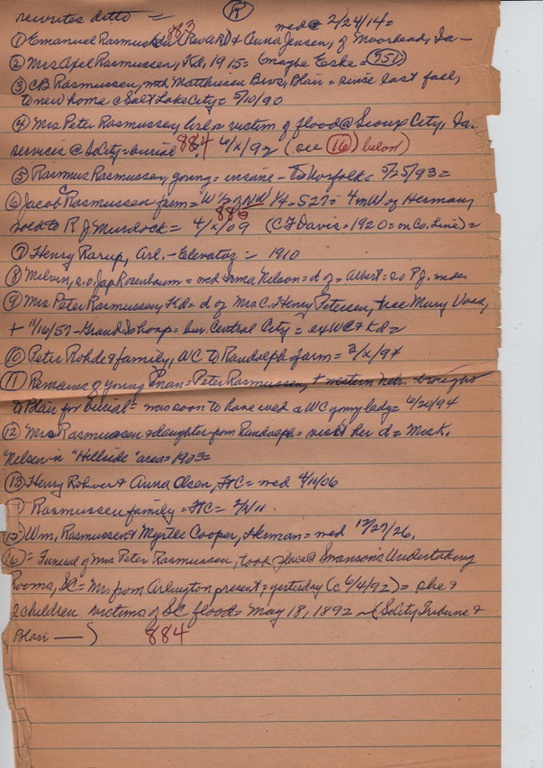 rewrites ditto =
R
883
med @ 2/24/14 =
① Emanuel Rasmussen & Anna Jensen, of Moorhead, Ia -
② Mrs Axel Rasmussen, Kd, 1915 = (maybe Eske = 551)
③ CB Rasmussen, with Matthiesen Bros, Blair = since last fall,
to new home @ Salt Lake City = 2/10/90
④ Mrs Peter Rasmussen, = victim of flood @ Sioux City, Ia -
services @ burial 884 6/x/92 (see 16 below)
⑤ Rasmus Rasmussen, young = insane - to Norfolk = 5/25/93 =
⑥ Jacob C Rasmussen farm = W 1/2 of NW 1/4 - 527 = 4 mi W of Herman,
886
sold to R J Murdock = 4/x/09 (C F Davis = 1920 = on Co. Line) =
⑦ Henry Rarup, Arl. - Elevator = 1910
⑧ Melvin, s.o. Jap Rosenbaum = med Irma Nelson = d of = Albert = s.o P J.
⑨ Mrs Peter Rasmussen, Kd = d of Mrs C. Henry Petersen, nee Mary
+ 11/16/57 - Grand = bur. Central City = ex WC & Kd =
⑩ Peter Rohde & family, WC to Randolph farm = 3/x/94
⑪ Remains of young man = Peter Rasmussen, + western Nebr. brought
to Blair for burial = was soon to have wed a WC young lady = 6/20/94
⑫ Mrs Rasmussen & daughter from Randolph = visit her d = Mrs K.
Nelsen in "Hillside" area = 1903 =
⑬ Henry Rohwer & Anna Olsen, FC = med 4/11/06
Rasmussen family = FC = 2/x/11
Wm. Rasmussen & Myrtle Cooper, Herman = med 12/27/26.
= Funeral of Mrs Peter Rasmussen, took place @ Swanson's Undertaking
Rooms, SC = Mrs from Arlington present = yesterday (c 6/4/92) = she &
2 children victims of SC flood = May 18, 1892 - (SCity Tribune &
Blair — )
884